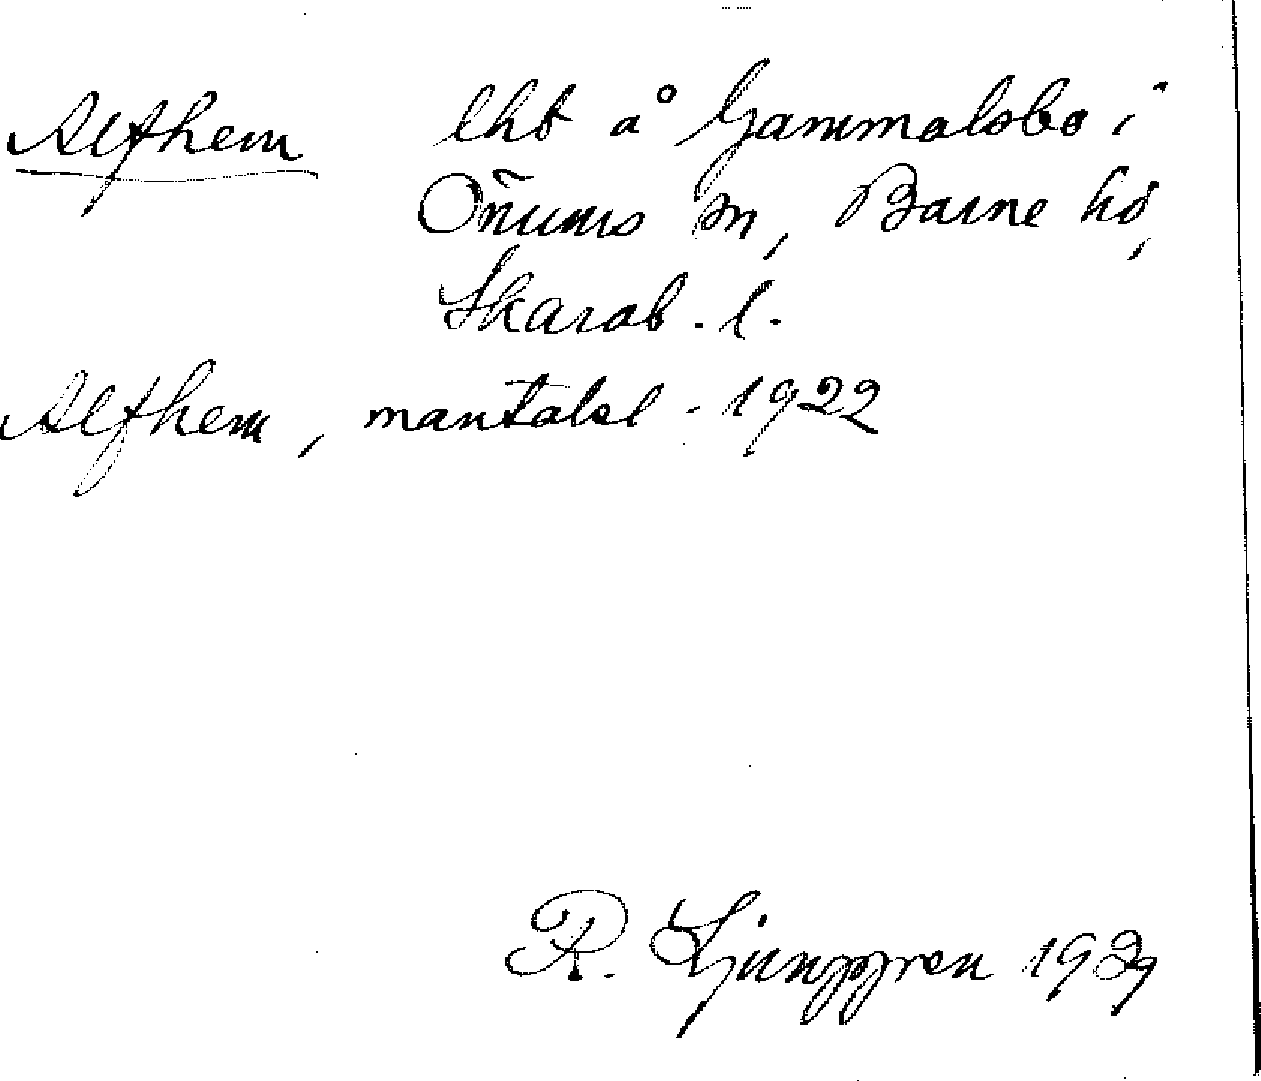 Alfhem lht å Gammalsbo i
Önums sn, Barne hd,
Skarab. l.
Alfhem, mantalsl. 1922
R. Ljunggren 1929